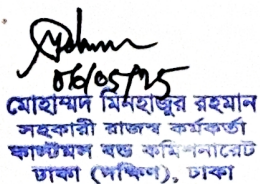 ০৮/০৫/২৫
মোহাম্মদ মিনহাজুর রহমান
সহকারী রাজস্ব কর্মকর্তা
কাস্টমস বন্ড কমিশনারেট
ঢাকা (দক্ষিণ), ঢাকা